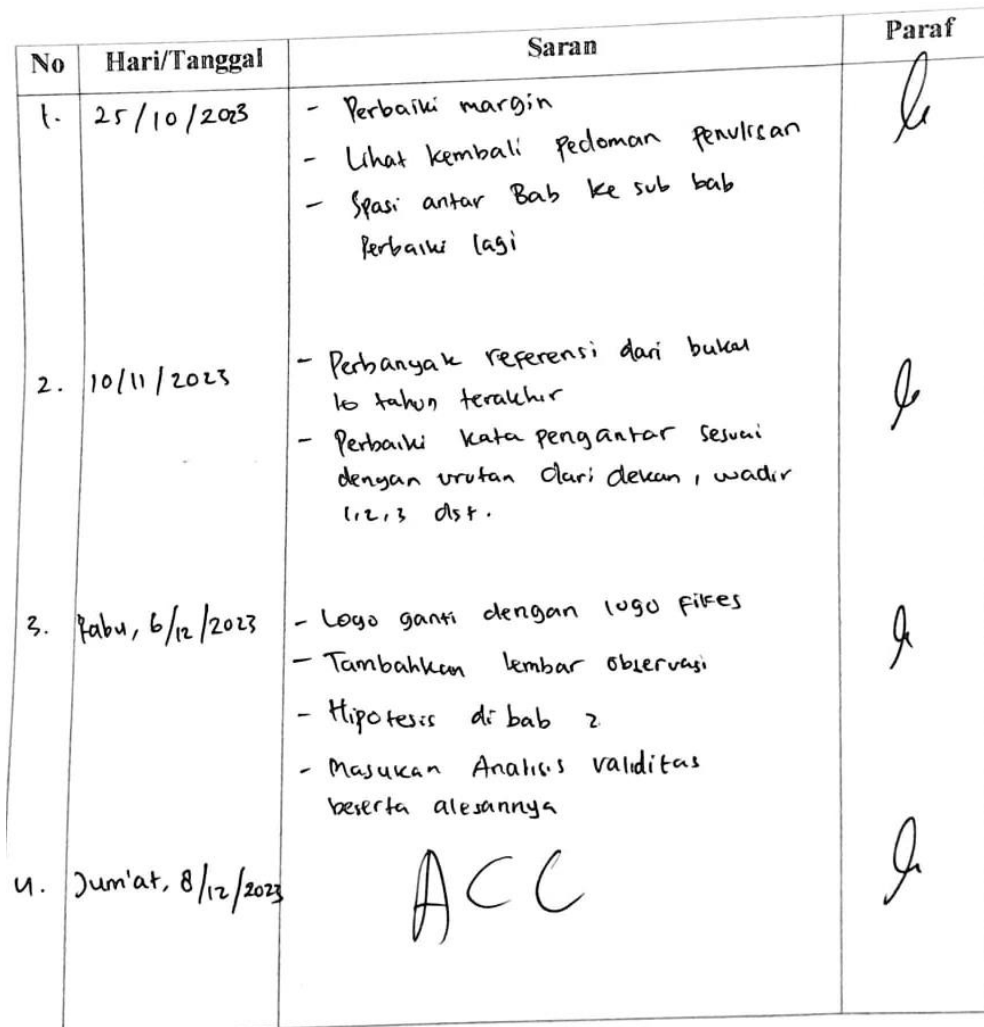 No Hari/Tanggal Saran Paraf
1. 25/10/2023 - Perbaiki margin
- Lihat kembali pedoman penulisan
- Spasi antar Bab ke sub bab
Perbaiki lagi
2. 10/11/2023 - Perbanyak referensi dari buku
10 tahun terakhir
- Perbaiki kata pengantar sesuai
dengan urutan dari dekan, wadir
1,2,3 dst.
3. Rabu, 6/12/2023 - Logo ganti dengan logo fikes
- Tambahkan lembar observasi
- Hipotesis di bab 2
- Masukan Analisis validitas
beserta alesannya
4. Jum'at, 8/12/2023 ACC